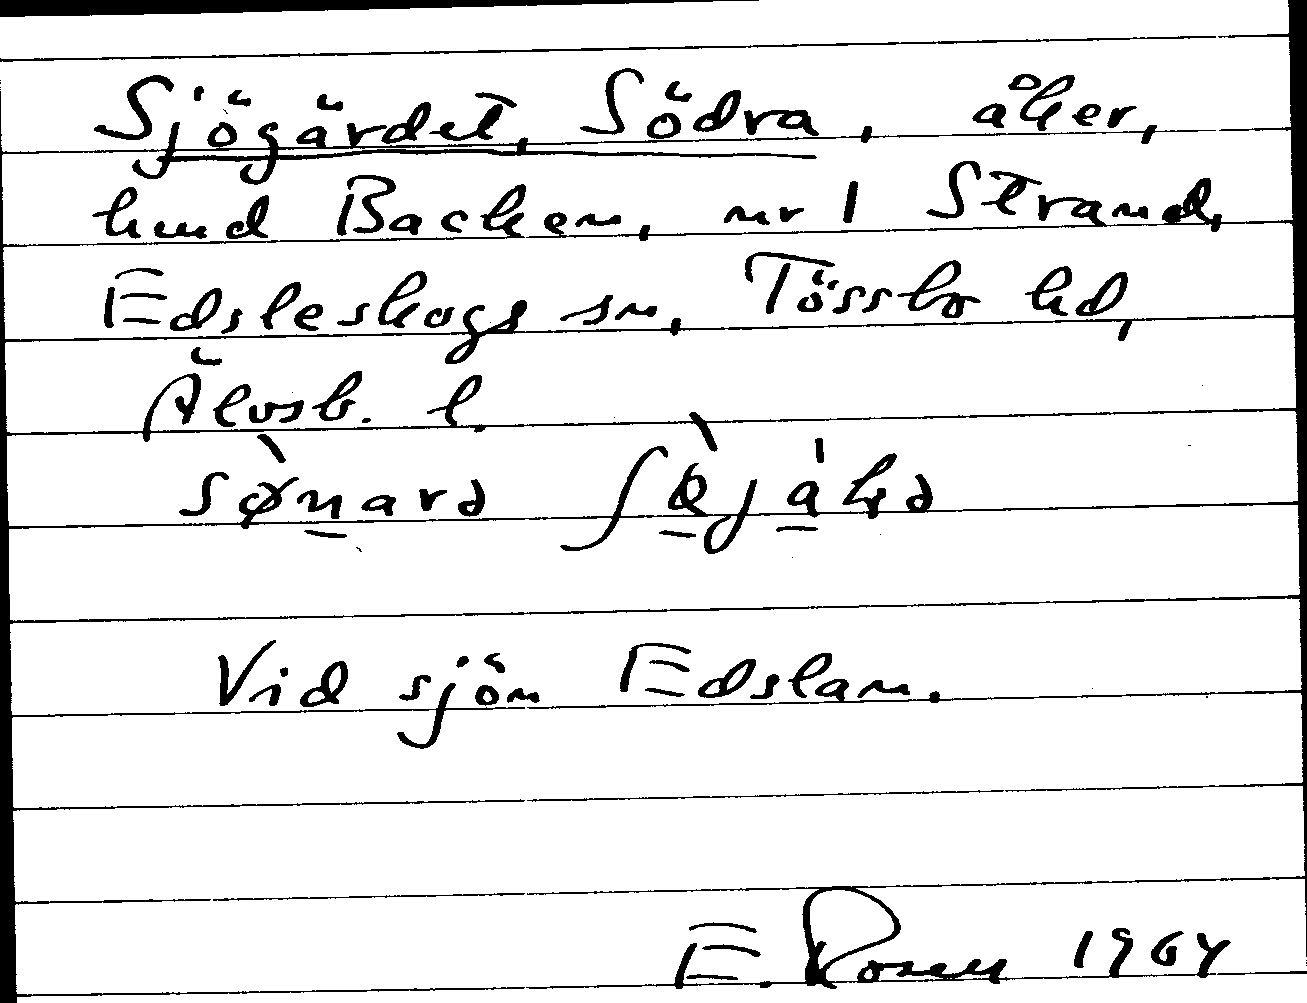 Sjögärdet, Södra, åker,
hmd Backen, nr 1 Strand,
Edsleskogs sn, Tössbo hd,
Älvsb. l.
Vid sjön Edslan.
E. Rosell 1964